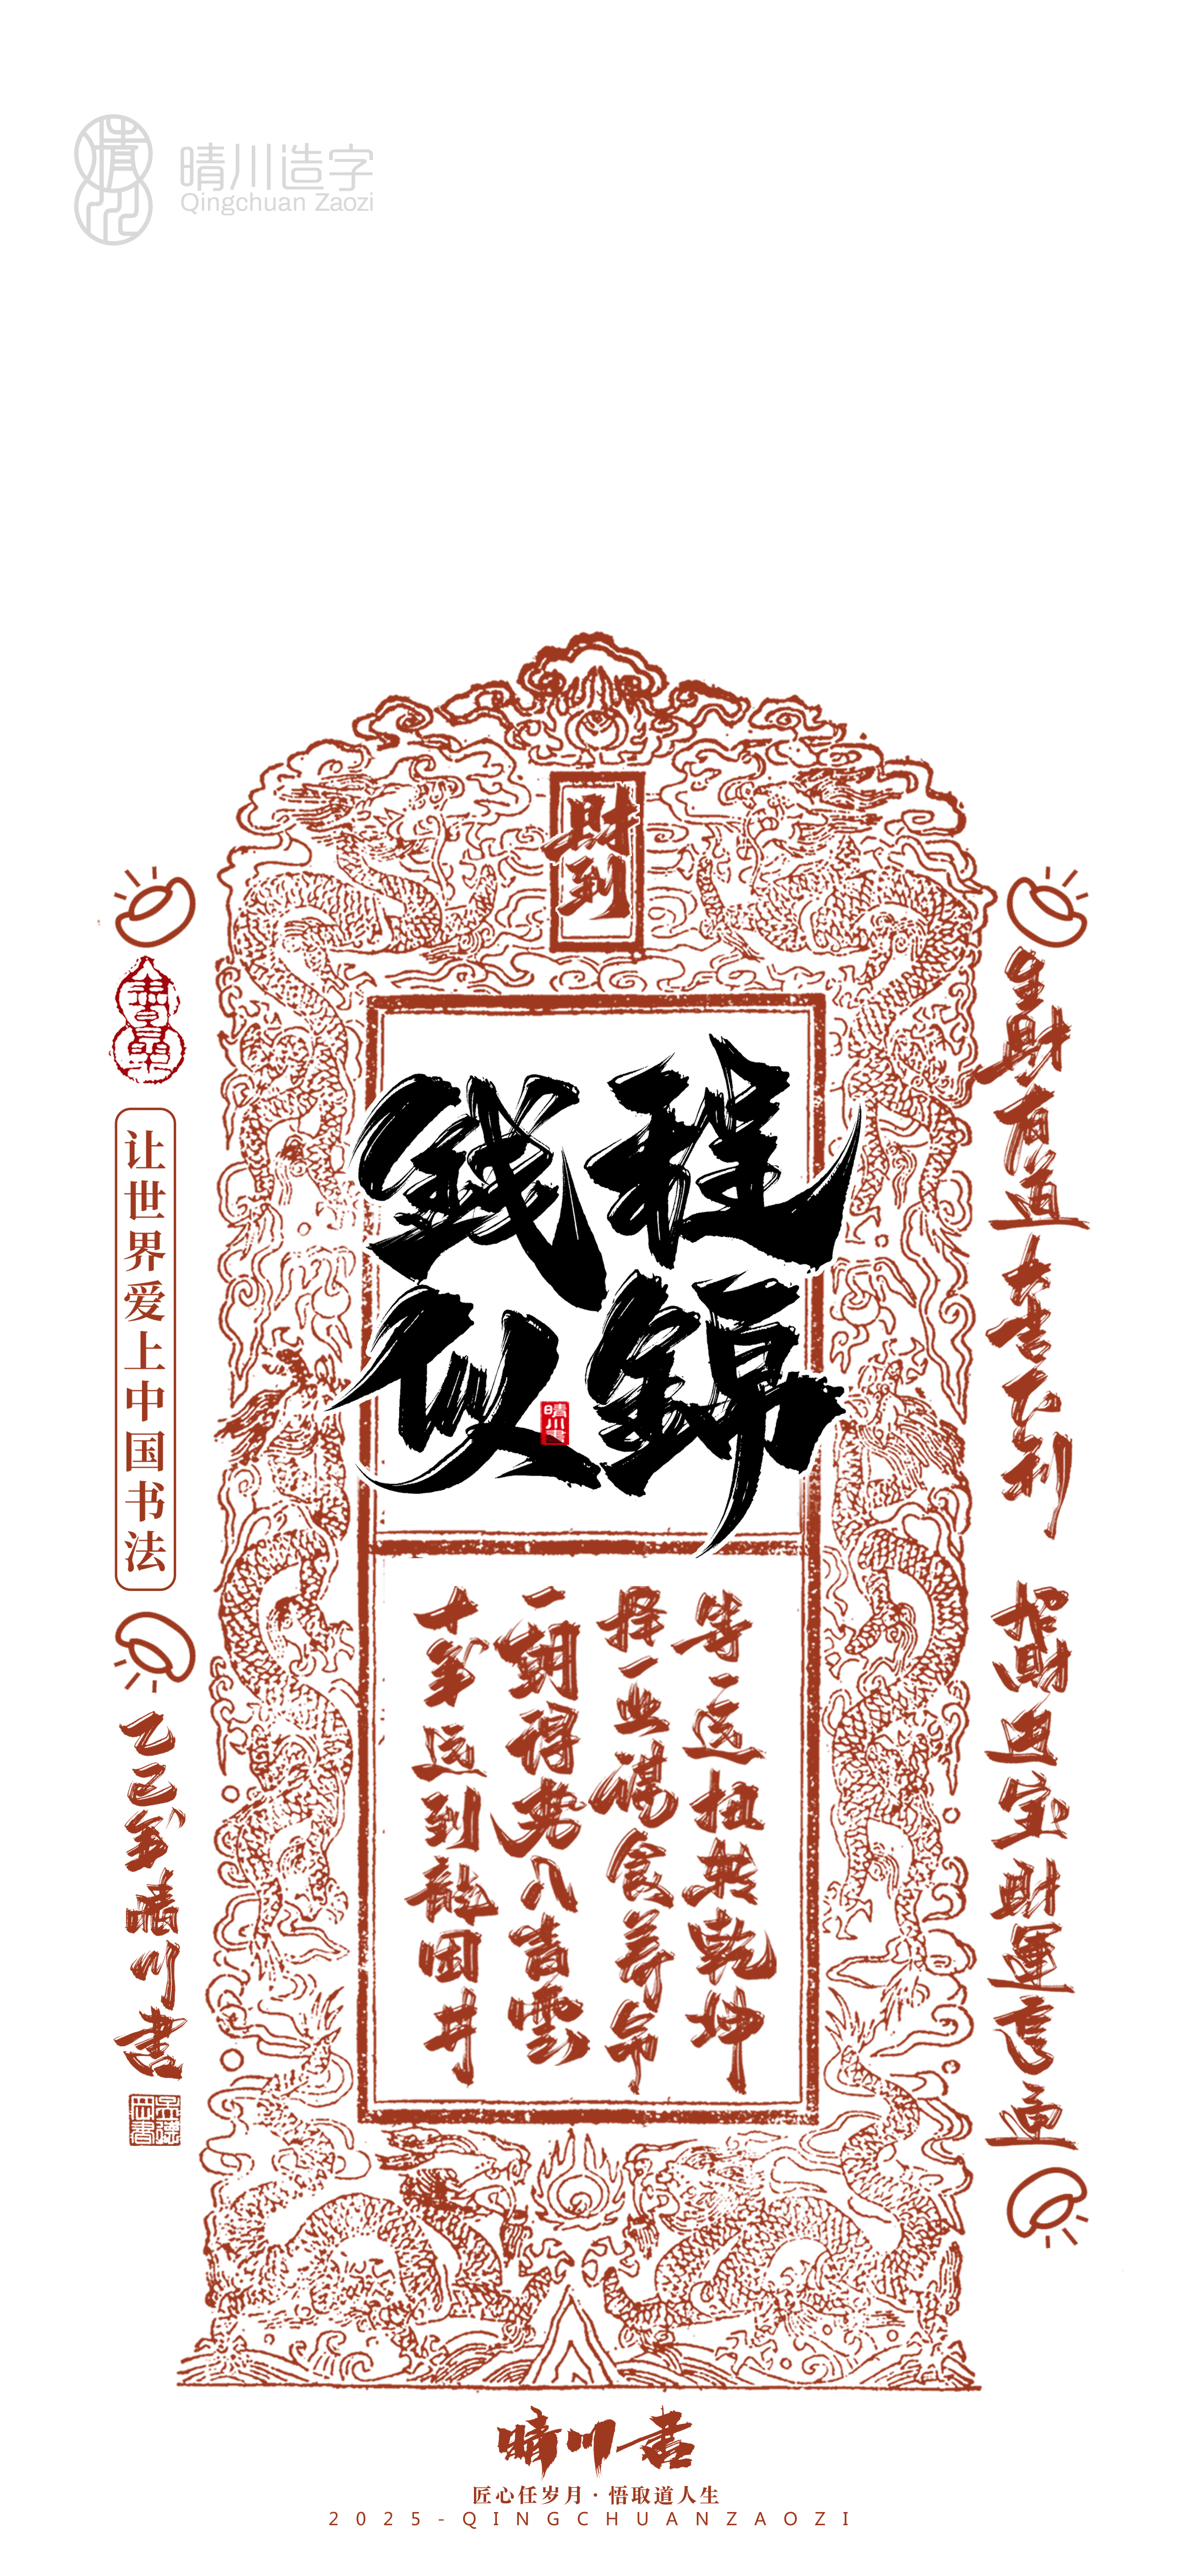 晴川造字
Qingchuan Zaozi
財到
錢程
似錦
晴川書
等一运扭转乾坤
择一业谋食养命
一朝得势入青雲
十年运到龍困井
生財有道大吉大利
招財進宝財運亨通
让世界爱上中国书法
乙巳年晴川書
晴川書
匠心任岁月·悟取道人生
2025-QINGCHUANZAOZI